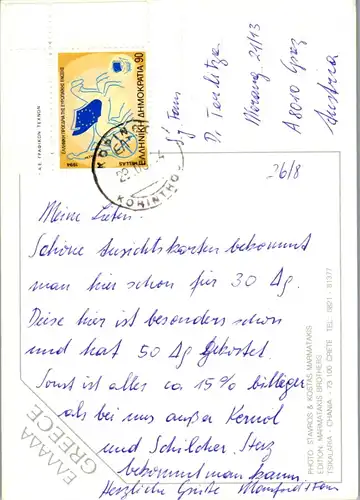 26/8
Meine Lieben!
Schöne Ansichtskarten bekommt
man hier schon für 30 Ag.
Diese hier ist besonders schön
und hat 50 Ag gekostet.
Sonst ist alles ca. 15% billiger
als bei uns außer Kernöl
und Schilcher. Sterz
bekommt man kaum.
Herzliche Grüße Manfred + Fam
Fam
A 8010 Graz
Austria
ΕΛΛΗΝΙΚΗ ΠΡΟΕΔΡΙΑ ΤΗΣ ΕΥΡΩΠΑΪΚΗΣ ΕΝΩΣΗΣ
ΕΛΛΗΝΙΚΗ ΔΗΜΟΚΡΑΤΙΑ 90
HELLAS
1994
ΚΟΡΙΝΘ
KORINTHO
ΓΡΑΦΙΚΩΝ ΤΕΧΝΩΝ
ΕΛΛΑΔΑ
GREECE
PHOTO: STAVROS & KOSTAS MARMATAKIS
EDITION: MARMATAKIS BROTHERS
TSIKALARIA - CHANIA - 73 100 CRETE TEL.: 0821 - 81377